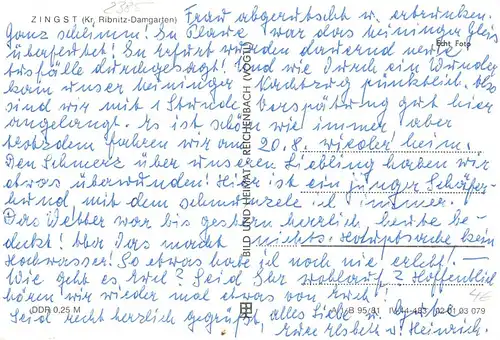 2385
ZINGST (Kr. Ribnitz-Damgarten)
Frau abgerutscht u. ertrunken.
Ganz schlimm! In Plaue war das Meininger Gleis
überflutet! In Erfurt wurden dauernd neue
Ausfälle durchgesagt! Und wie durch ein Wunder
kam unser Meininger Nachtzug pünktlich. Also
sind wir mit 1 Stunde Verspätung gut hier
angelangt. Es ist schön wie immer aber
trotzdem fahren wir am 20.8. wieder heim.
Den Schmerz über unseren Liebling haben wir
etwas überwunden! Hier ist ein junger Schäfer-
hund, mit dem schmunzele ich immer.
Das Wetter war bis gestern herrlich, heute be-
deckt! Aber das macht nichts. Hauptsache kein
Hochwasser! So etwas habe ich noch nie erlebt!
Wie geht es Euch? Seid Ihr wohlauf? Hoffentlich
hören wir wieder mal etwas von Euch!
Seid recht herzlich gegrüßt, alles Liebe u. Gute
Eure Elsbeth u. Heinrich.
Echt Foto
BILD UND HEIMAT REICHENBACH (VOGTL)
4€
DDR 0,25 M
B 95/81 IV-14-483 12 01 03 079